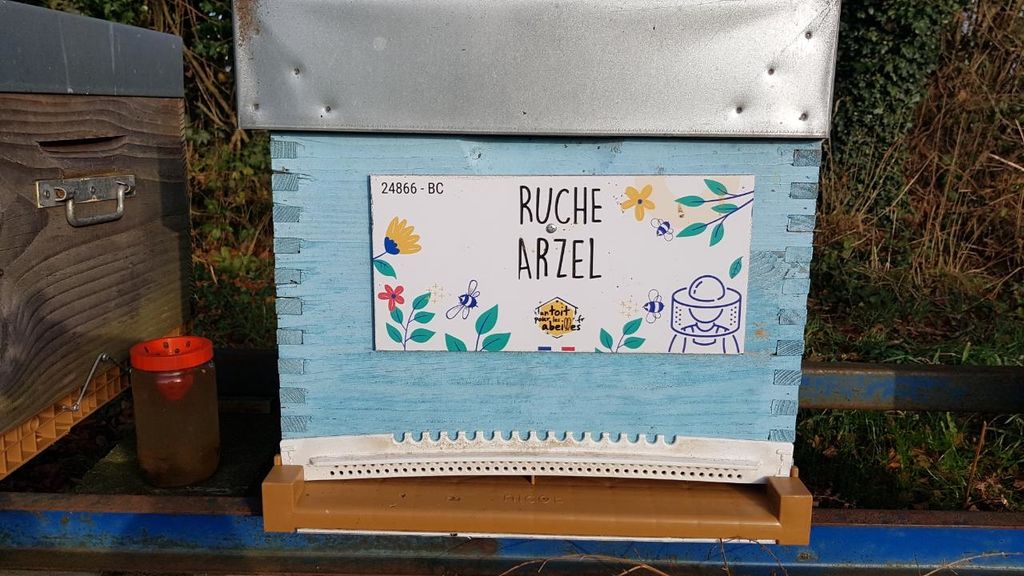 24866 - BC
RUCHE
ARZEL
un toit
pour les
abeilles.fr
NICOT